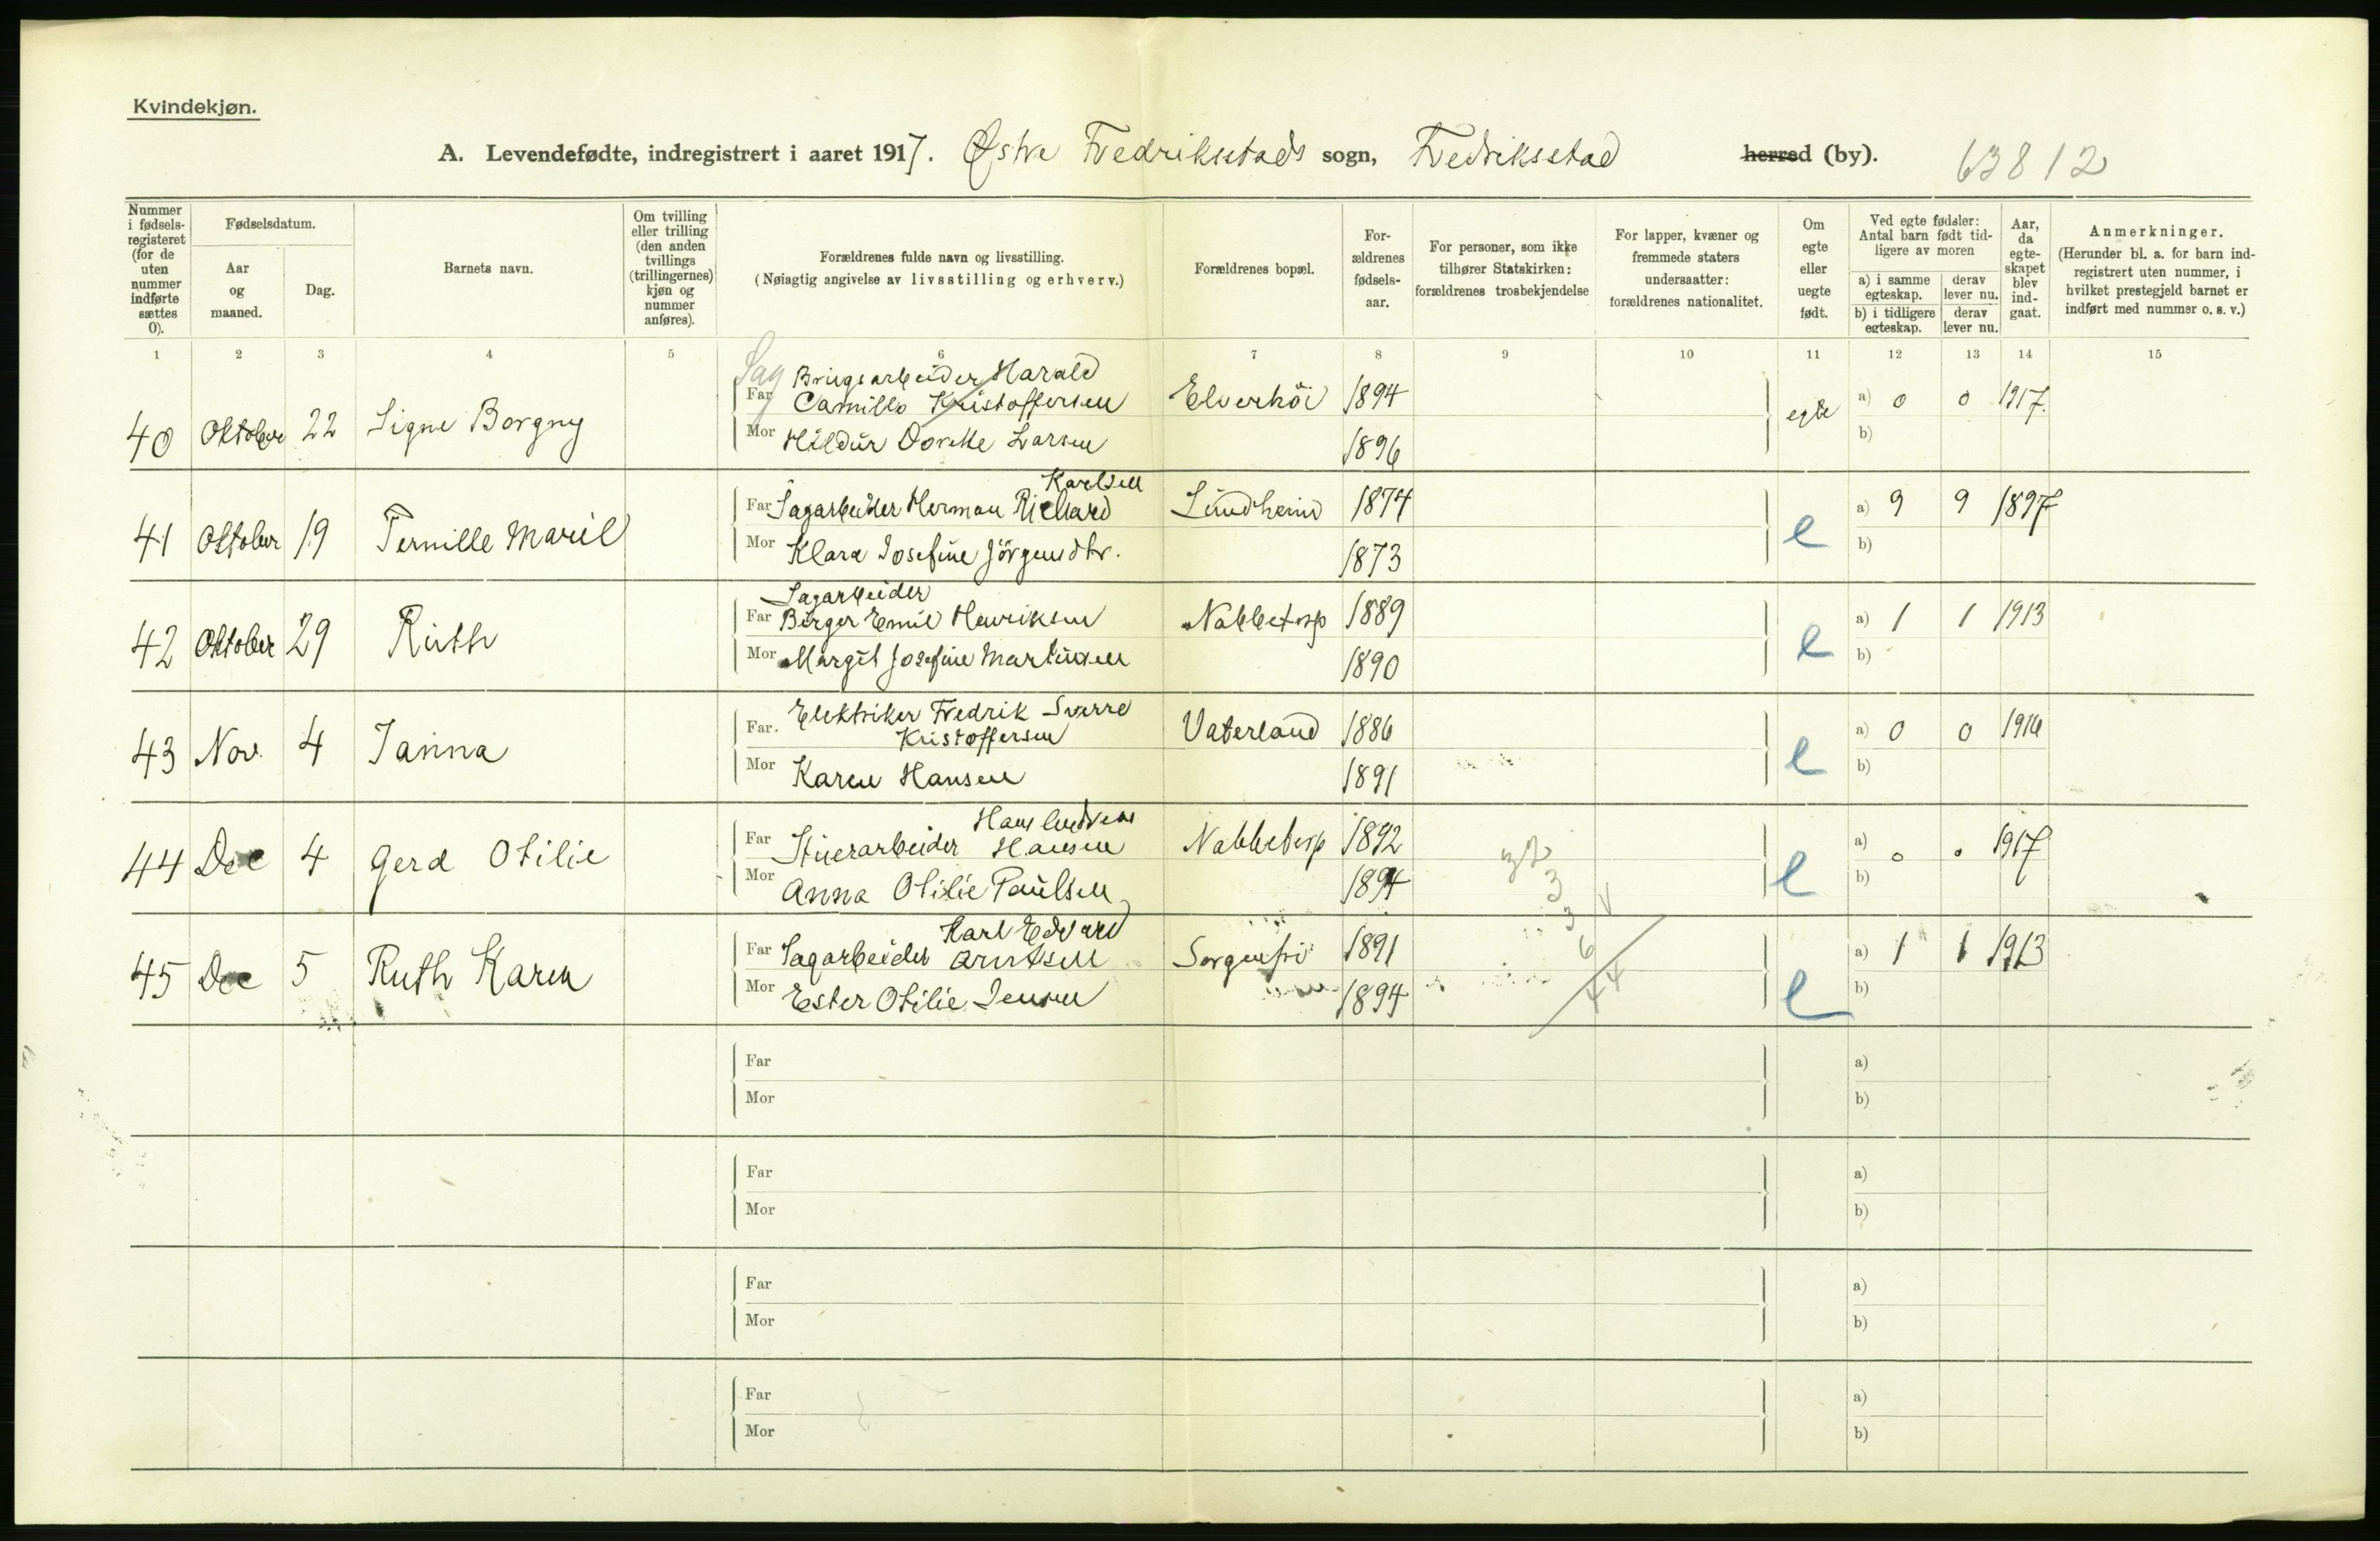 Kvindekjøn.
A. Levendefødte, indregistrert i aaret 1917. Østre Fredriksstads sogn, Fredriksstad herred (by). 63812
Nummer i fødsels-registeret (for de uten nummer indførte sættes 0).
Fødselsdatum.
Aar og maaned.
Dag.
Barnets navn.
Om tvilling eller trilling (den anden tvillings (trillingernes) kjøn og nummer anføres).
Forældrenes fulde navn og livsstilling.
(Nøiagtig angivelse av livsstilling og erhverv.)
Forældrenes bopæl.
For-ældrenes fødsels-aar.
For personer, som ikke tilhører Statskirken: forældrenes trosbekjendelse
For lapper, kvæner og fremmede staters undersaatter: forældrenes nationalitet.
Om egte eller uegte født.
Ved egte fødsler: Antal barn født tid-ligere av moren
a) i samme egteskap. derav lever nu.
b) i tidligere egteskap. derav lever nu.
Aar, da egte-skapet blev ind-gaat.
Anmerkninger.
(Herunder bl. a. for barn ind-registrert uten nummer, i hvilket prestegjeld barnet er indført med nummer o. s. v.)
1 2 3 4 5 6 7 8 9 10 11 12 13 14 15
Sag Brugsarbeider Harald
40 Oktober 22 Signe Borgny Far Camillo Kristoffersen Elverhöi 1894 egte a) 0 0 1917.
Mor Hildur Dorthe Larsen 1896 b)
Karlsen
41 Oktober 19 Pernille Maril Far Sagarbeider Herman Richard Lundheim 1874 e a) 9 9 1897
Mor Klara Josefine Jörgensdtr. 1873 b)
Sagarbeider
42 Oktober 29 Ruth Far Birger Emil Henriksen Nabbetorp 1889 e a) 1 1 1913
Mor Margit Josefine Martinsen 1890 b)
Elektriker Fredrik Sverre
43 Nov. 4 Janna Far. Kristoffersen Vaterland 1886 e a) 0 0 1916
Mor Karen Hansen 1891 b)
Hans Ludvik
44 Dec 4 Gerd Otilie Far Stuerarbeider Hansen Nabbetorp 1892 e a) 0 0 1917
Mor Anna Otilie Paulsen 1894 b)
Karl Edvard
45 Dec 5 Ruth Karen Far Sagarbeider Arntsen Sorgenfri 1891 e a) 1 1 1913
Mor Ester Otilie Jensen 1894 b)
3
3
6
44
Far a)
Mor b)
Far a)
Mor b)
Far a)
Mor b)
Far a)
Mor b)